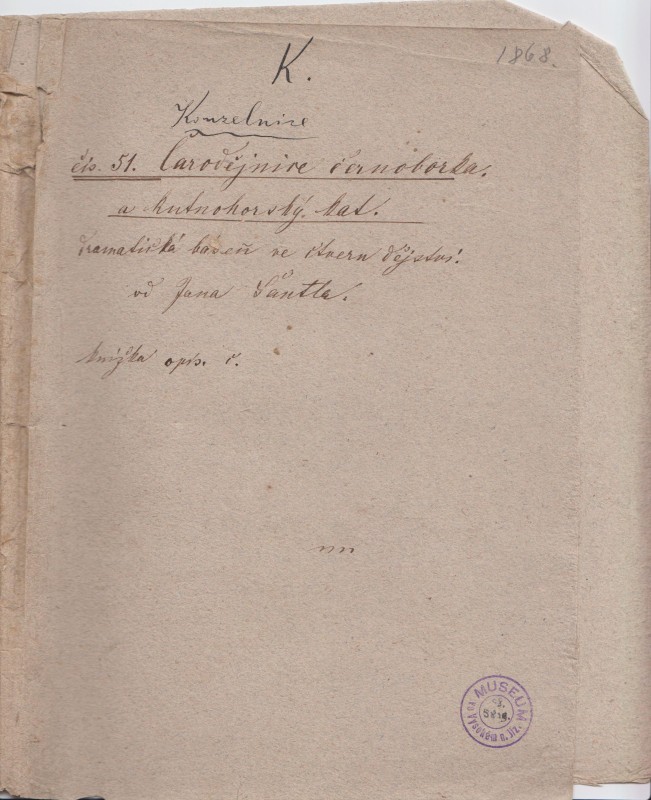 K.
1868.
Kouzelnice
čís. 51. Čarodějnice černoborka.
a kutnohorský kat.
dramatická báseň ve čtveru dějství.
od Jana Šantla.
knížka opis. č.
MUSEUM